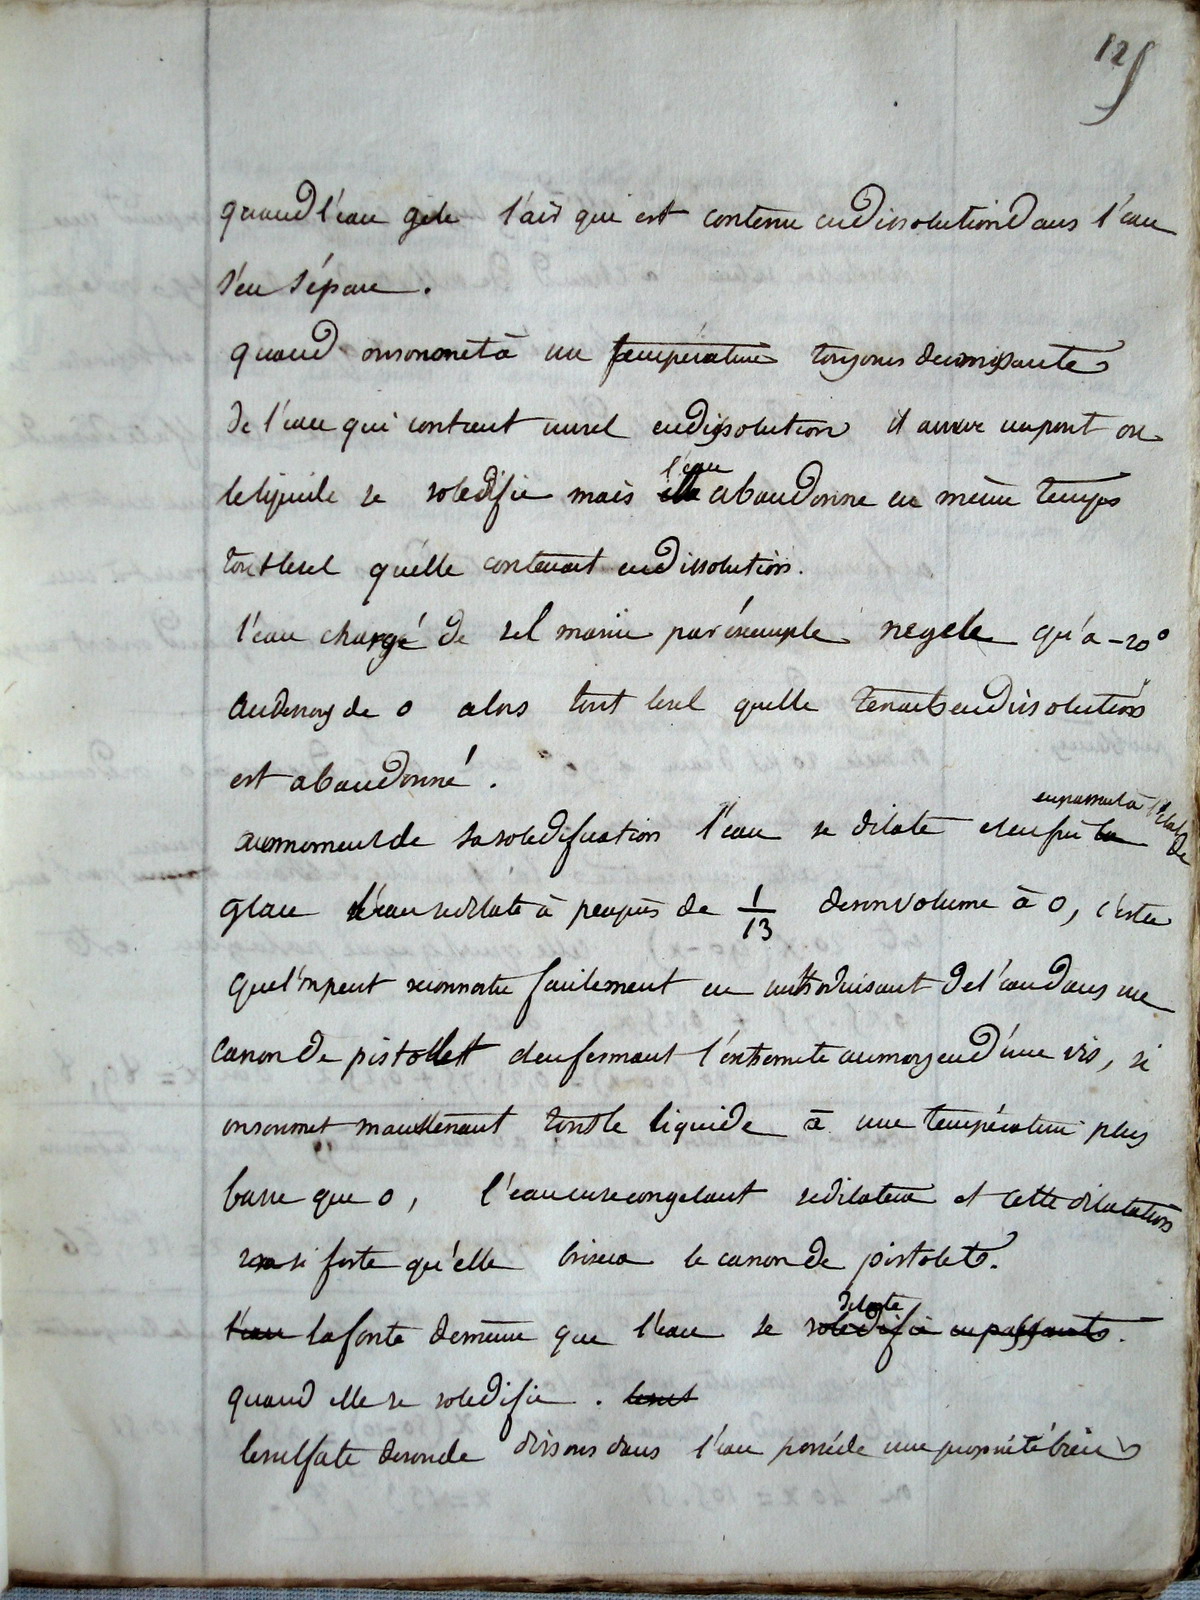 125
quand l'eau gele l'air qui est contenu en dissolution dans l'eau
s'en sépare.
quand on soumet à une température toujours decroissante
de l'eau qui contient un sel en dissolution il arrive un point ou
le liquide se soledifie mais l'eau abandonne en même temps
tout le sel qu'elle contenait en dissolution.
l'eau chargé de sel marin par éxemple ne gele qu'a -20°
au dessous de 0 alors tout le sel quelle tenait en dissolution
est abandonné.
au moment de sa soledification l'eau se dilate en passant à l'état de
glace l'eau se dilate à peu près de 1/13 de son volume à 0, c'est ce
que l'on peut reconnoitre facilement en introduisant de l'eau dans un
canon de pistollet et en fermant l'extremité au moyen d'une vis, si
on soumet maintenant tout le liquide à une température plus
basse que 0, l'eau en se congelant se dilatera et cette dilatation
sera si forte qu'elle brisera le canon de pistolet.
l'eau la fonte de même que l'eau se dilate soledifie en passant.
quand elle se soledifie. le sul
le sulfate de soude dissous dans l'eau possède une propriété bien